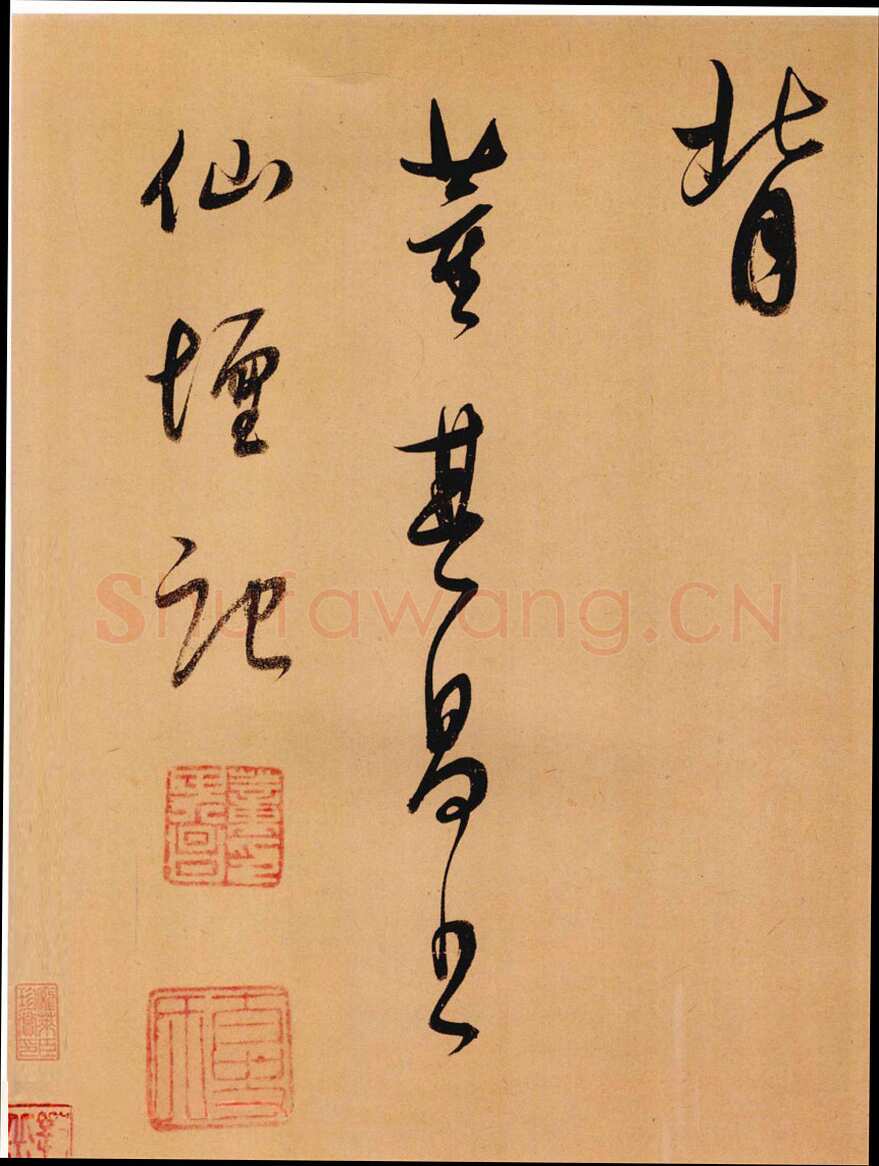 背
董其昌書
仙壇記
Shufawang.CN